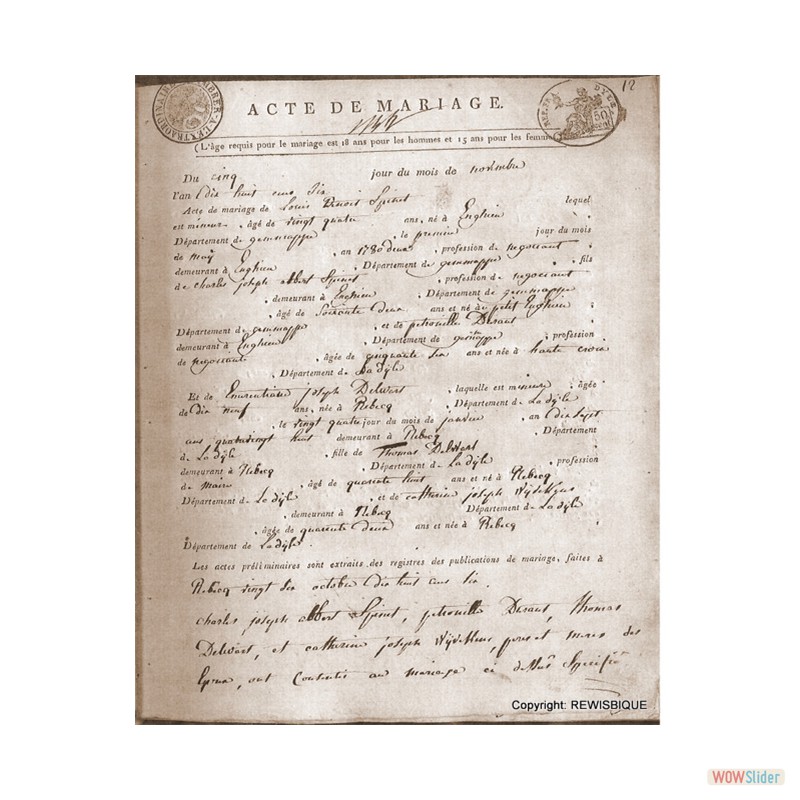 12
ACTE DE MARIAGE.
(L'âge requis pour le mariage est 18 ans pour les hommes et 15 ans pour les femmes
Du cinq jour du mois de novembre
l'an dix huit cens six
Acte de mariage de Louis Benoit Spinet lequel
est mineur, âgé de vingt quatre ans, né à Enghien
Département de gemmappe, le premier jour du mois
de maÿ, an 1780 deux, profession de negociant
demeurant à Enghien, Département de gemmappe, fils
de charles joseph albert Spinet, profession de negociant
, demeurant à Enghien, Département de gemmappe
, âgé de Soixante deux ans et né à petit Enghien
Département de gemmappe, et de petronille
demeurant à Enghien, Département de gemmappe, profession
de negociant, âgée de cinquante six ans et née à haute croix
, Département de La dÿle
Et de joseph Delwart, laquelle est mineure, âgée
de dix neuf ans, née à Rebecq, Département de La dÿle
, le vingt quatre jour du mois de janvier, an dix sept
cens quatrevingt huit demeurant à Rebecq, Département
de La dÿle, fille de Thomas Delwart
demeurant à Rebecq, Département de La dÿle, profession
de maire, âgé de quarante huit ans et né à Rebecq
Département de La dÿle, et de catherine joseph
, demeurant à Rebecq Département de La dÿle
, âgée de quarante deux ans et née à Rebecq
Département de La dÿle
Les actes préliminaires sont extraits des registres des publications de mariage, faites à
Rebecq vingt six octobre dix huit cens six.
charles joseph albert Spinet, petronille Thomas
Delwart, et catherine joseph peres et meres des
Epoux, ont Consentis au mariage ci dessus Specifié
Copyright: REWISBIQUE
WOWSlider